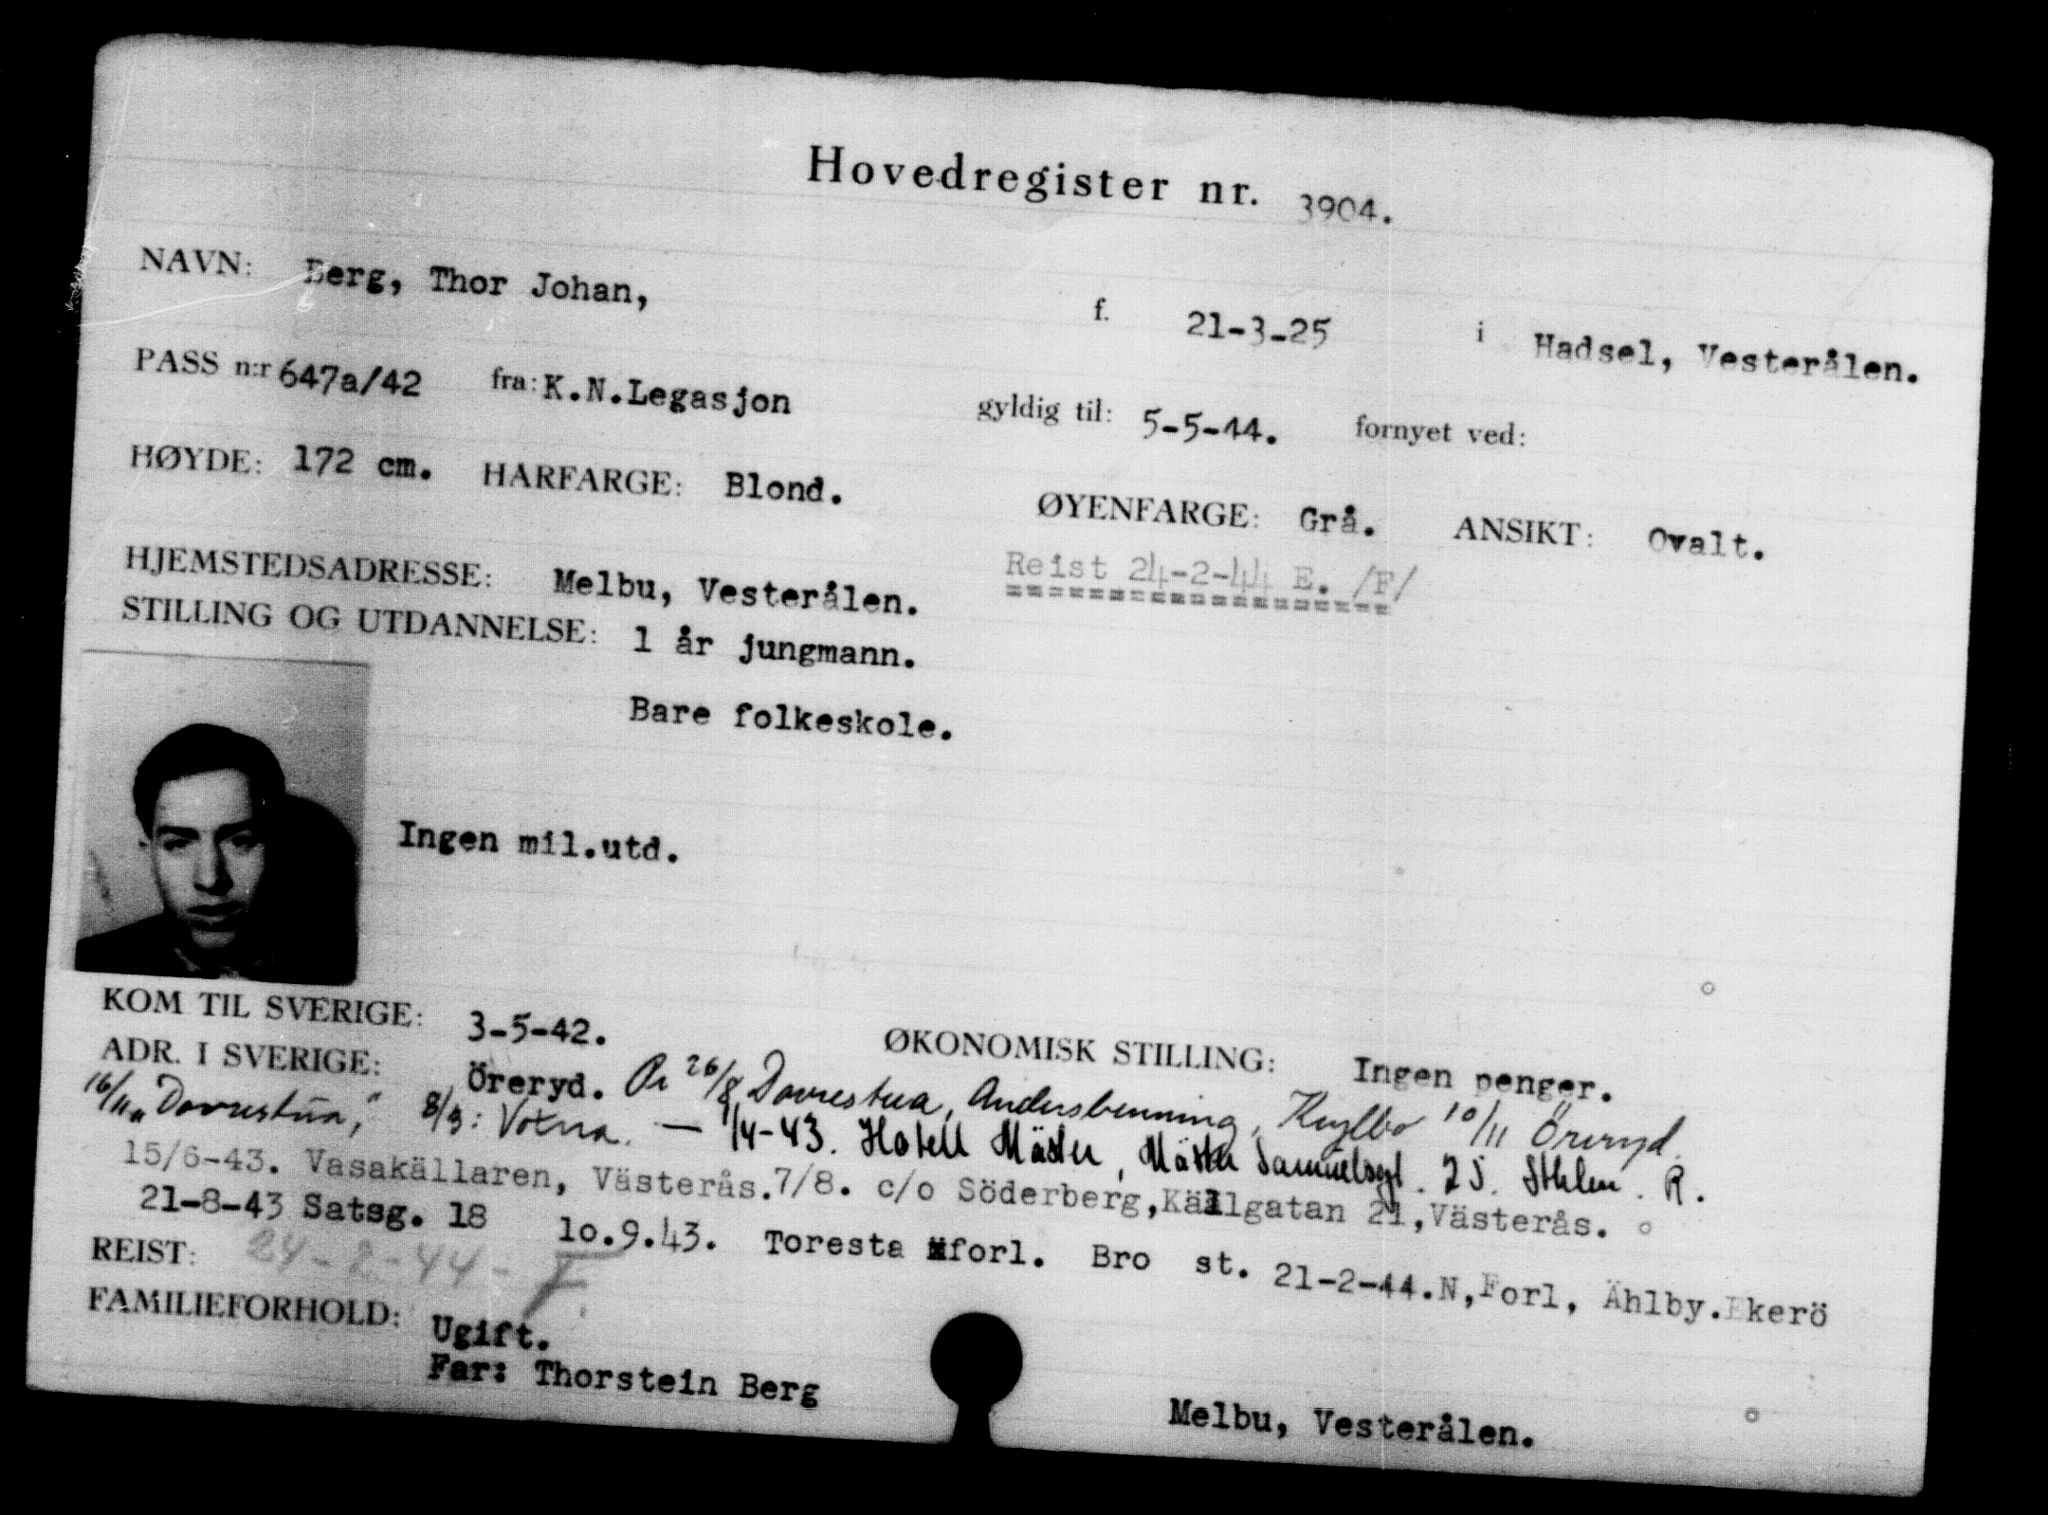 Hovedregister nr. 3904.
NAVN: Berg, Thor Johan, f. 21-3-25 i Hadsel, Vesterålen.
PASS n:r 647a/42 fra: K.N.Legasjon gyldig til: 5-5-44. fornyet ved:
HØYDE: 172 cm. HARFARGE: Blond. ØYENFARGE: Grå. ANSIKT: Ovalt.
HJEMSTEDSADRESSE: Melbu, Vesterålen. Reist 24-2-44 E. /F/
STILLING OG UTDANNELSE: 1 år jungmann.
Bare folkeskole.
Ingen mil.utd.
KOM TIL SVERIGE: 3-5-42. ØKONOMISK STILLING: Ingen penger.
ADR. I SVERIGE: Öreryd. 26/8 Dovrestua, Andersbenning, Krylbo 10/11 Öreryd.
16/11 "Dovrestua," 8/3: Voxna. — 1/4-43. Hotell Mäster, Mäster Samuelsgt. 25. Sthlm. R.
15/6-43. Vasakällaren, Västerås. 7/8. c/o Söderberg, Källgatan 21, Västerås.
21-8-43 Satsg. 18 10.9.43. Toresta forl. Bro st. 21-2-44. N, Forl, Ählby. Ekerö
REIST: 24-2-44 - F.
FAMILIEFORHOLD: Ugift.
Far: Thorstein Berg Melbu, Vesterålen.